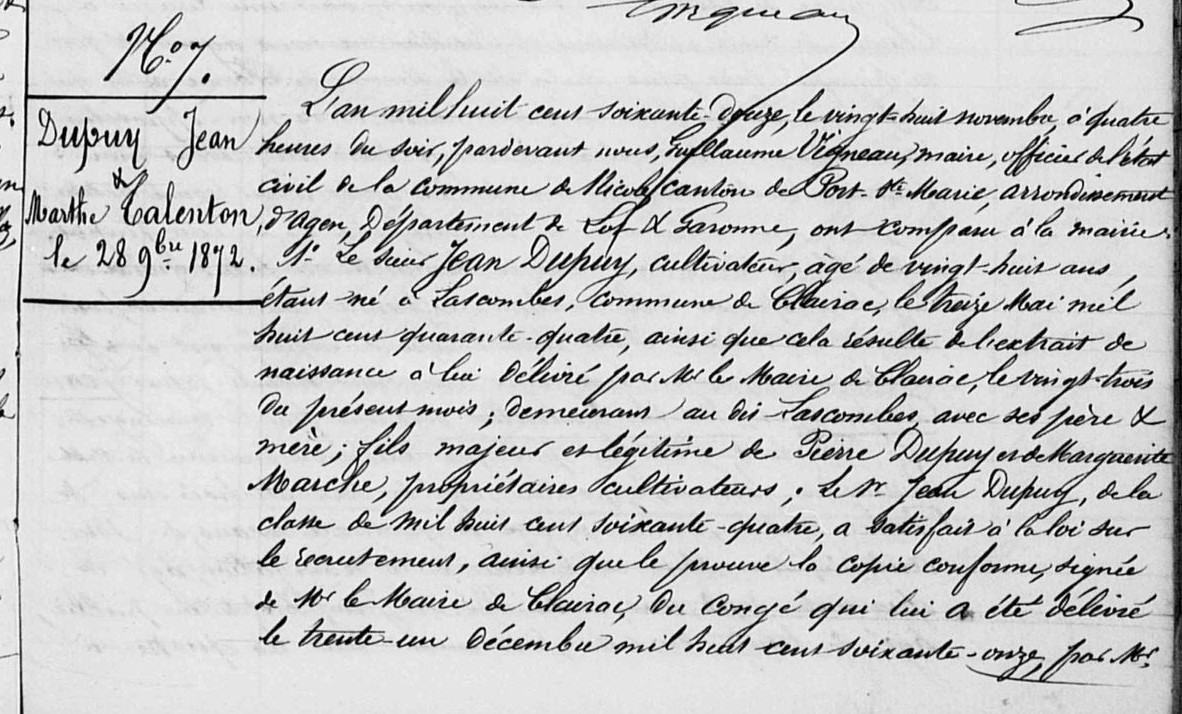 N.o 7.
Dupuy Jean
&
Marthe Talenton
le 28 9bre 1872
L'an mil huit cent soixante-douze, le vingt-huit novembre, à quatre
heures du soir, pardevant nous, Guillaume Vigneau, maire, officier de l'état
civil de la commune de Nicole, canton de Port-Ste-Marie, arrondissement
d'Agen, Département de Lot & Garonne, ont comparu à la mairie:
1º Le sieur Jean Dupuy, cultivateur, âgé de vingt-huit ans,
étant né à Lascombes, commune de Clairac, le treize Mai mil
huit cent quarante-quatre, ainsi que cela résulte de l'extrait de
naissance à lui délivré par Mr le Maire de Clairac, le vingt-trois
du présent mois; demeurant au dit Lascombes, avec ses père &
mère; fils majeur et légitime de Pierre Dupuy et de Marguerite
Marche, propriétaires cultivateurs. Le Sr Jean Dupuy, de la
classe de mil huit cent soixante-quatre, a satisfait à la loi sur
le recrutement, ainsi que le prouve la copie conforme, signée
de Mr le Maire de Clairac, du Congé qui lui a été délivré
le trente-un Décembre mil huit cent soixante-onze, par Mr